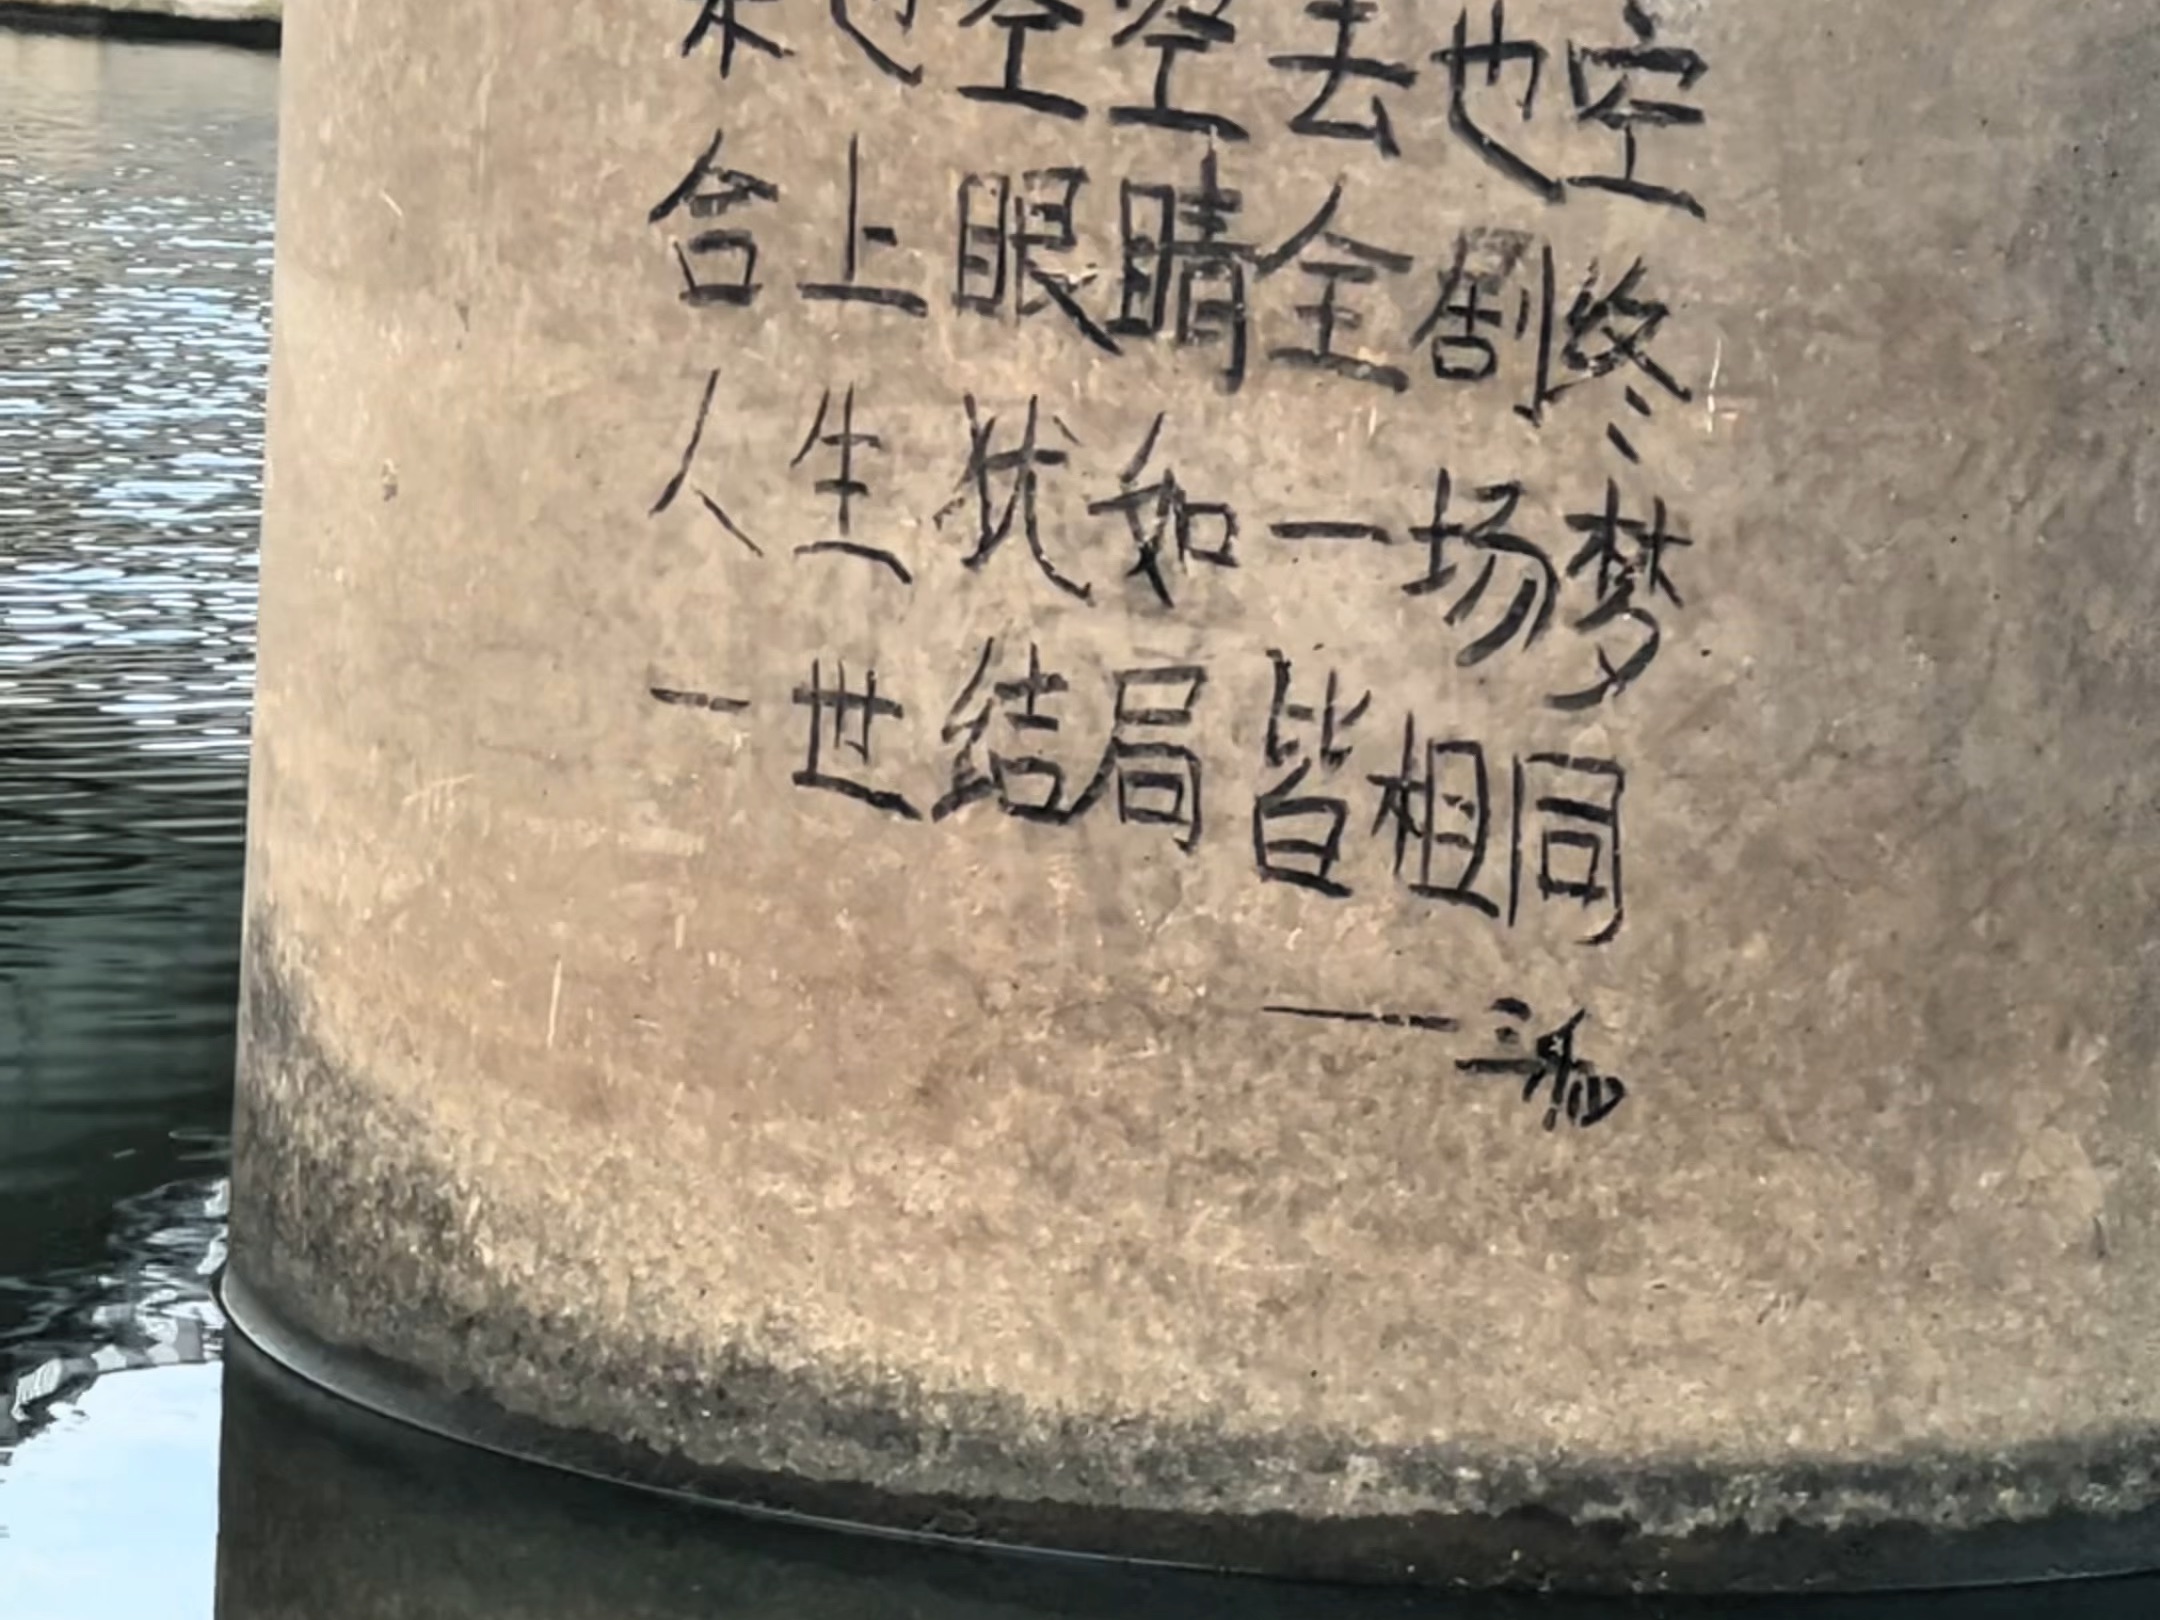 来也空空去也空
合上眼睛全割终
人生犹如一场梦
一世结局皆相同
——三